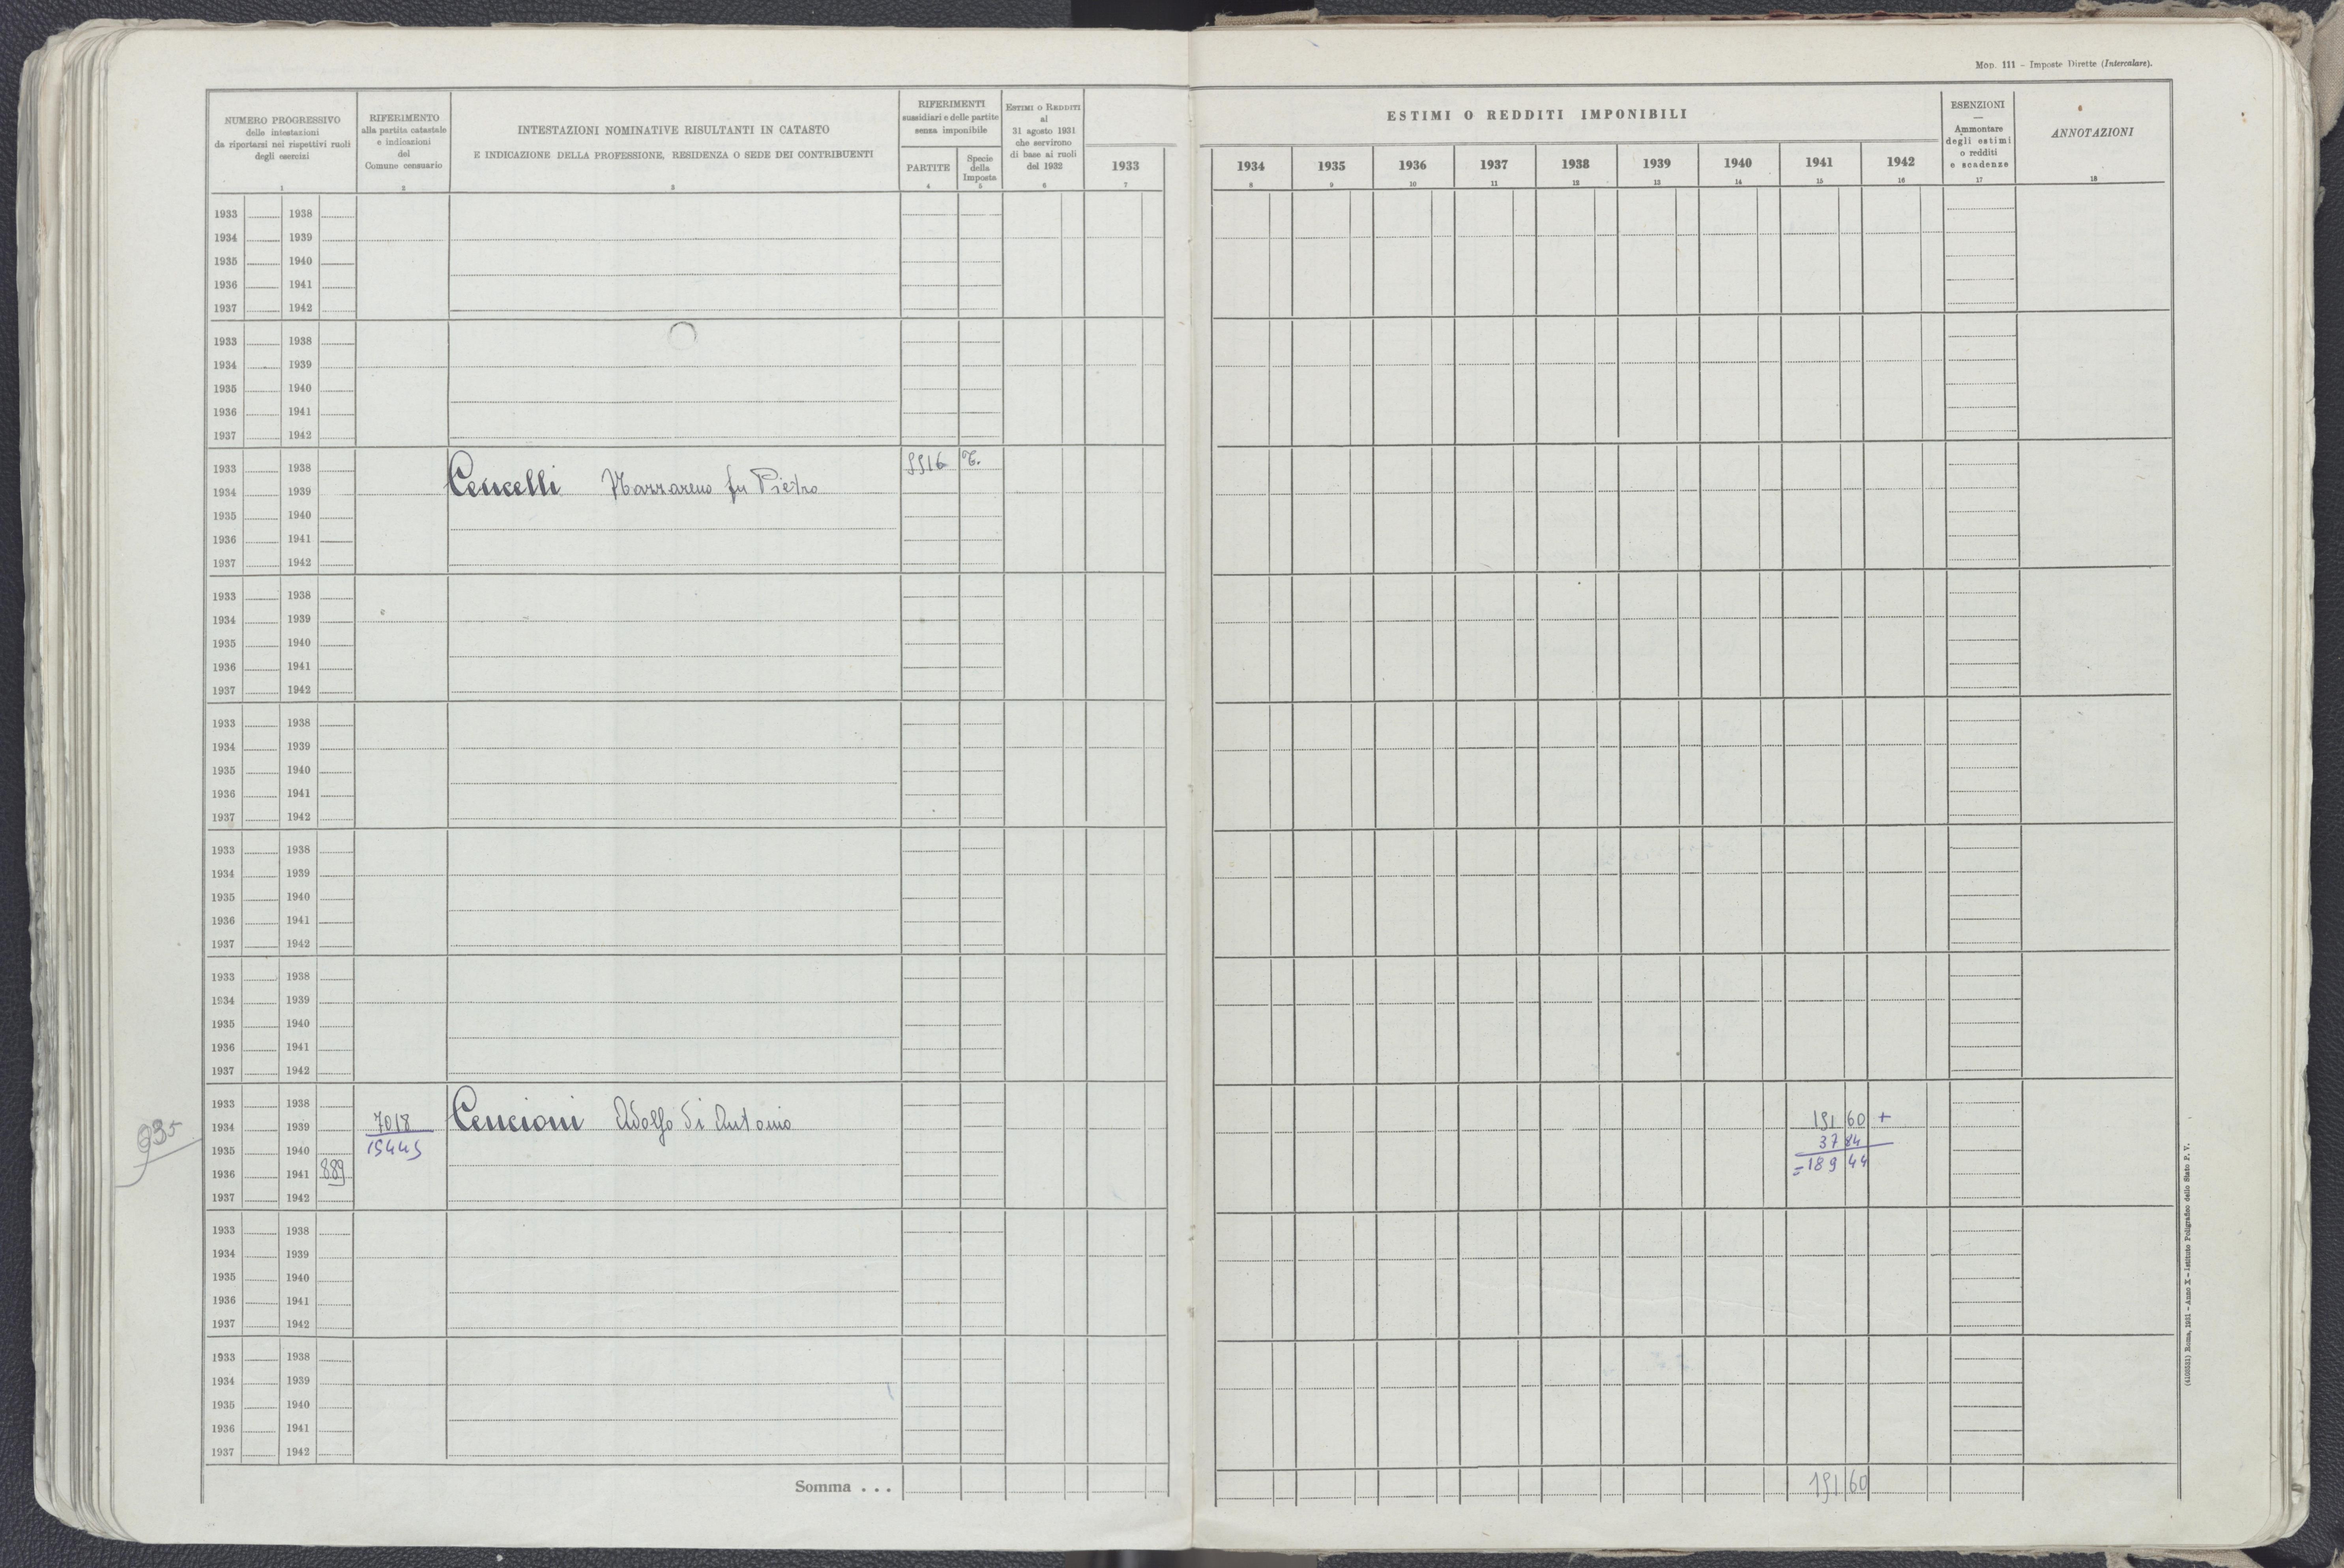 Mod. 111 – Imposte Dirette (Intercalare).
NUMERO PROGRESSIVO
delle intestazioni
da riportarsi nei rispettivi ruoli
degli esercizi
1
RIFERIMENTO
alla partita catastale
e indicazioni
del
Comune censuario
2
INTESTAZIONI NOMINATIVE RISULTANTI IN CATASTO
E INDICAZIONE DELLA PROFESSIONE, RESIDENZA O SEDE DEI CONTRIBUENTI
3
RIFERIMENTI
sussidiari e delle partite
senza imponibile
PARTITE
4
Specie
della
Imposta
5
Estimi o Redditi
al
31 agosto 1931
che servirono
di base ai ruoli
del 1932
6
ESTIMI O REDDITI IMPONIBILI
1933 1934 1935 1936 1937 1938 1939 1940 1941 1942
7 8 9 10 11 12 13 14 15 16
ESENZIONI
—
Ammontare
degli estimi
o redditi
e scadenze
17
ANNOTAZIONI
18
1933 1938
1934 1939
1935 1940
1936 1941
1937 1942
1933 1938
1934 1939
1935 1940
1936 1941
1937 1942
1933 1938 5516 T.
1934 1939 Cencelli Nazzareno fu Pietro
1935 1940
1936 1941
1937 1942
1933 1938
1934 1939
1935 1940
1936 1941
1937 1942
1933 1938
1934 1939
1935 1940
1936 1941
1937 1942
1933 1938
1934 1939
1935 1940
1936 1941
1937 1942
1933 1938
1934 1939
1935 1940
1936 1941
1937 1942
1933 1938
935 1934 1939 7018 Cencioni Adolfo di Antonio 151 60 +
1935 1940 15445 37 84
1936 1941 889 =189 44
1937 1942
1933 1938
1934 1939
1935 1940
1936 1941
1937 1942
1933 1938
1934 1939
1935 1940
1936 1941
1937 1942
Somma . . . 151 60
(4105581) Roma, 1931 – Anno X – Istituto Poligrafico dello Stato P. V.